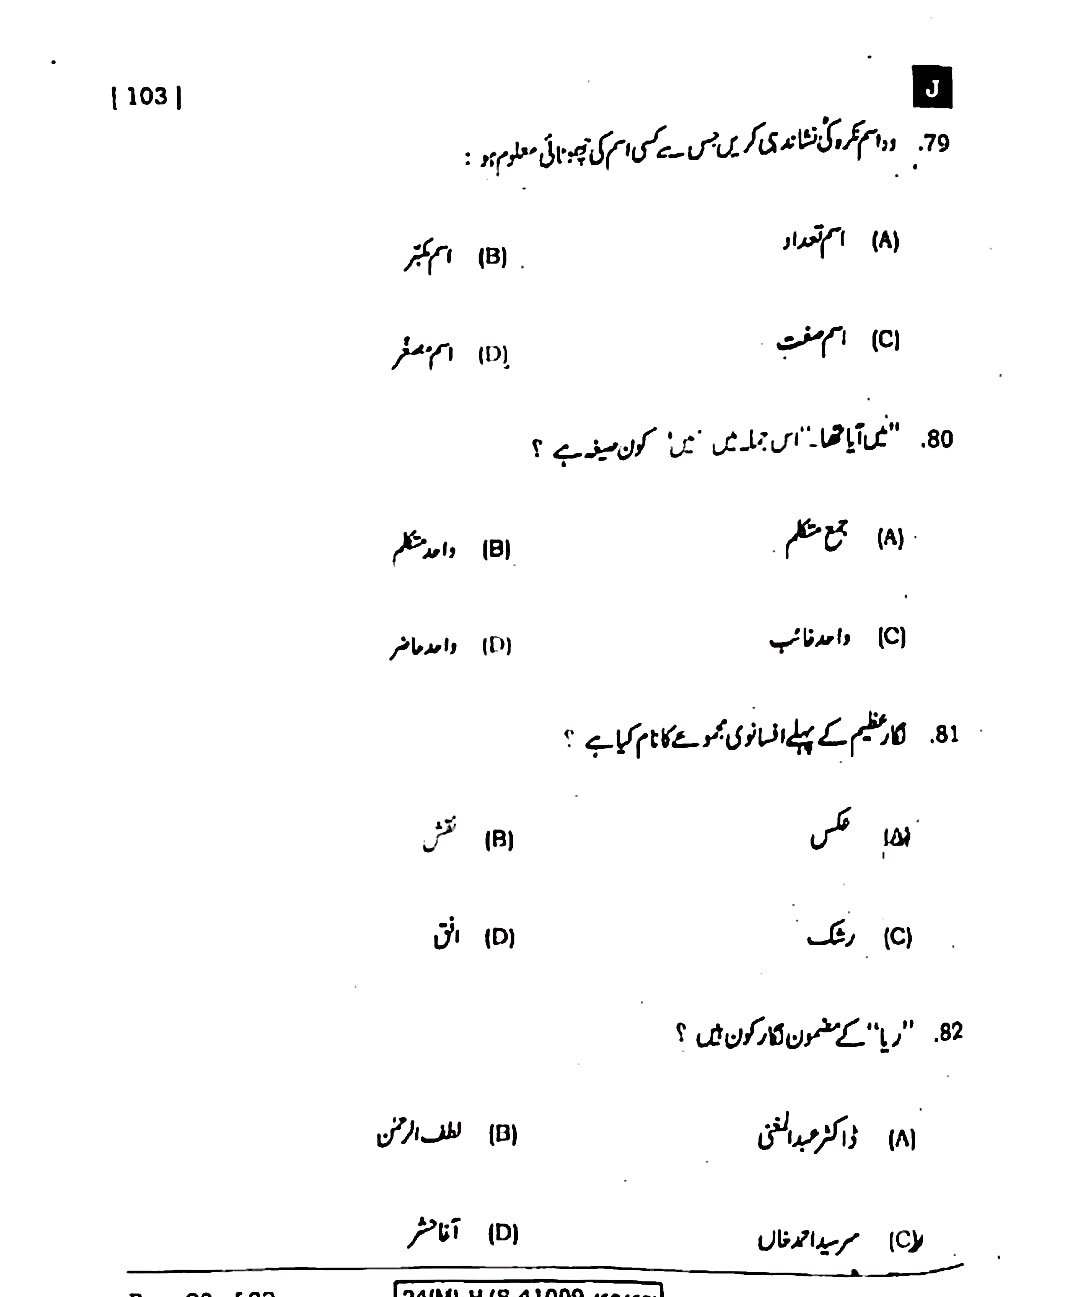 [ 103 ]
J
79. وہ اسم نکرہ کی نشاندہی کریں جس سے کسی اسم کی چھوٹائی معلوم ہو :
(A) اسم تعداد
(B) اسم مکبّر
(C) اسم صفت
(D) اسم مصغّر
80. "میں آیا تھا۔" اس جملہ میں 'میں' کون صیغہ ہے ؟
(A) جمع متکلم
(B) واحد متکلم
(C) واحد غائب
(D) واحد حاضر
81. نگار عظیم کے پہلے افسانوی مجموعے کا نام کیا ہے ؟
(A) عکس
(B) نقش
(C) رشک
(D) افق
82. "ریا" کے مضمون نگار کون ہیں ؟
(A) ڈاکٹر عبدالمغنی
(B) لطف الرحمٰن
(C) سرسید احمد خاں
(D) آغا حشر